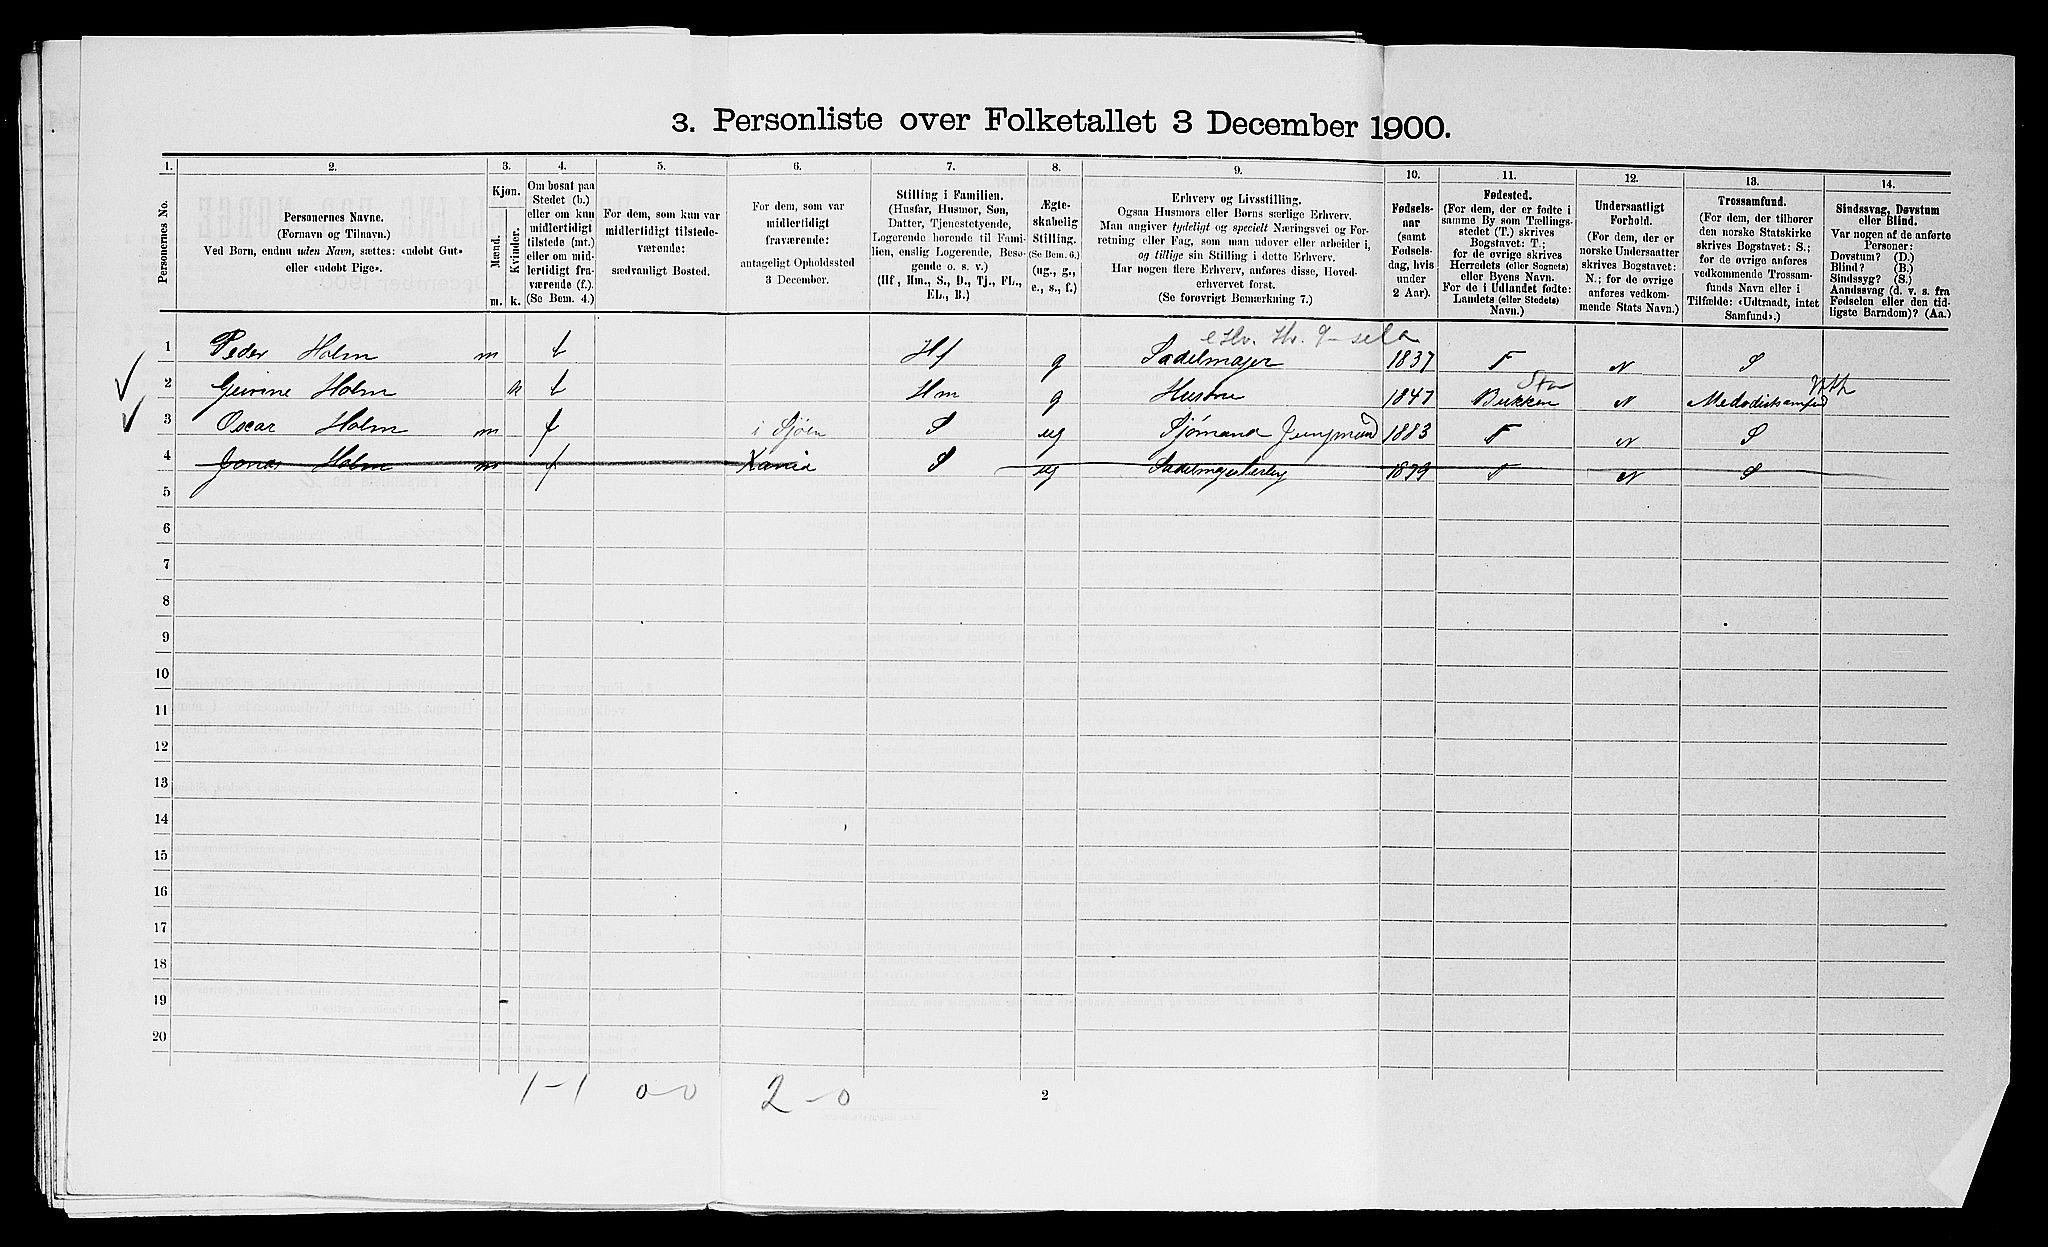 3. Personliste over Folketallet 3 December 1900.
1. 2. 3. 4. 5. 6. 7. 8. 9. 10. 11. 12. 13. 14.
Personernes No.
Personernes Navne.
(Fornavn og Tilnavn.)
Ved Børn, endnu uden Navn, sættes: «udøbt Gut»
eller «udøbt Pige».
Kjøn.
Mænd.
Kvinder.
m. k.
Om bosat paa
Stedet (b.)
eller om kun
midlertidigt
tilstede (mt.)
eller om mid-
lertidigt fra-
værende (f.).
(Se Bem. 4.)
For dem, som kun var
midlertidigt tilstede-
værende:
sædvanligt Bosted.
For dem, som var
midlertidigt
fraværende:
antageligt Opholdssted
3 December.
Stilling i Familien.
(Husfar, Husmor, Søn,
Datter, Tjenestetyende,
Logerende hørende til Fami-
lien, enslig Logerende, Besø-
gende o. s. v.)
(Hf, Hm., S., D., Tj., FL.,
EL., B.)
Ægte-
skabelig
Stilling.
(Se Bem. 6.)
(ug., g.,
e., s., f.)
Erhverv og Livsstilling.
Ogsaa Husmors eller Børns særlige Erhverv.
Man angiver tydeligt og specielt Næringsvei og For-
retning eller Fag, som man udøver eller arbeider i,
og tillige sin Stilling i dette Erhverv.
Har nogen flere Erhverv, anføres disse, Hoved-
erhvervet først.
(Se forøvrigt Bemærkning 7.)
Fødsels-
aar
(samt
Fødsels-
dag, hvis
under
2 Aar).
Fødested.
(For dem, der er fødte i
samme By som Tællings-
stedet (T.) skrives
Bogstavet: T.;
for de øvrige skrives
Herredets (eller Sognets)
eller Byens Navn.
For de i Udlandet fødte:
Landets (eller Stedets)
Navn.)
Undersaatligt
Forhold.
(For dem, der er
norske Undersaatter
skrives Bogstavet:
N.; for de øvrige
anføres vedkom-
mende Stats Navn.)
Trossamfund.
(For dem, der tilhører
den norske Statskirke
skrives Bogstavet: S.;
for de øvrige anføres
vedkommende Trossam-
funds Navn eller i
Tilfælde: «Udtraadt, intet
Samfund».)
Sindssvag, Døvstum
eller Blind.
Var nogen af de anførte
Personer:
Døvstum? (D.)
Blind? (B.)
Sindssyg? (S.)
Aandssvag (d. v. s. fra
Fødselen eller den tid-
ligste Barndom)? (Aa.)
1 Peder Holm m Hf g Sadelmager 1837 N S
2 Holm k Hm g Hustru 1847 N
3 Oscar Holm m f i Sjøen S ug Sjømand 1883 N S
4 Jonas Holm m f S ug 1879 N S
5
6
7
8
9
10
11
12
13
14
15
16
17
18
19
20
1-1 0-0 2-0
2